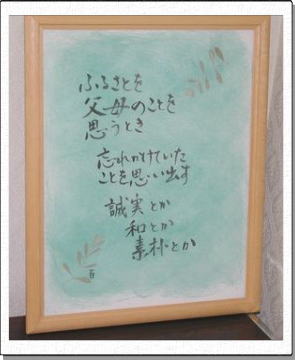 ふるさとを
父母のことを
思うとき
忘れかけていた
ことを思い出す
誠実とか
和とか
素朴とか